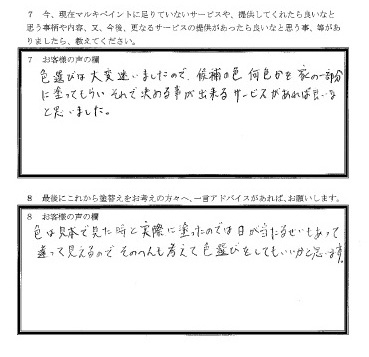 7　今、現在マルキペイントに足りていないサービスや、提供してくれたら良いなと
思う事柄や内容、又、今後、更なるサービスの提供があったら良いなと思う事、等があ
りましたら、教えてください。
7　お客様の声の欄
色選びは大変迷いましたので、候補の色 何色かを家の一部分
に塗ってもらい それで決める事が出来るサービスがあれば良いな
と思いました。
8　最後にこれから塗替えをお考えの方々へ、一言アドバイスがあれば、お願いします。
8　お客様の声の欄
色は見本で見た時と実際に塗ったのでは日が当たるせいもあって
違って見えるので そのへんも考えて色選びをしてもいいかと思います。